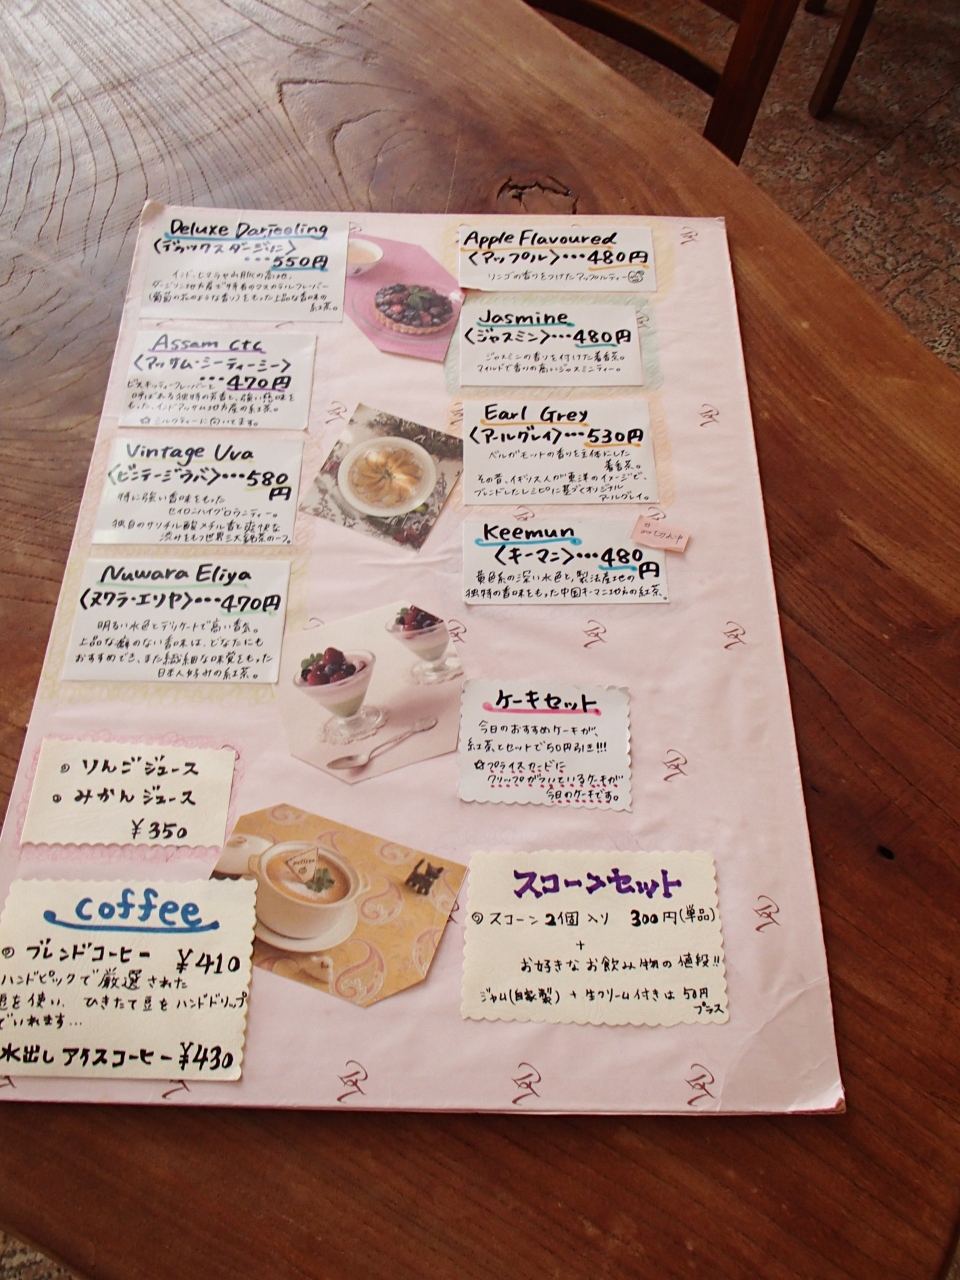 Deluxe Darjeeling
〈デラックス ダージリン〉
・・・550円
インド、ヒマラヤ山脈の高地、
ダージリン地方産で特有のマスカテルフレーバー
(葡萄の花のような香り)をもった上品な香味の
紅茶。
Assam CTC
〈アッサム・シーティーシー〉
・・・470円
ビスキッティーフレーバーと
呼ばれる独特の芳香と、強い滋味を
もった、インドアッサム地方産の紅茶。
☆ミルクティーに向いてます。
Vintage Uva
〈ビンテージウバ〉・・・580
円
特に強い香味をもった
セイロンハイグロウンティー。
独自のサリチル酸メチル香と爽快な
渋みをもつ世界三大銘茶の一つ。
Nuwara Eliya
〈ヌワラ・エリヤ〉・・・470円
明るい水色とデリケートで高い香気。
上品な癖のない香味は、どなたにも
おすすめでき、また繊細な味覚をもった
日本人好みの紅茶。
◎ りんごジュース
◎ みかんジュース
¥350
coffee
◎ ブレンドコーヒー ¥410
ハンドピックで厳選された
豆を使い、ひきたて豆をハンドドリップ
でいれます…
水出し アイスコーヒー ¥430
Apple Flavoured
〈アップル〉・・・480円
リンゴの香りをつけたアップルティー
Jasmine
〈ジャスミン〉・・・480円
ジャスミンの香りを付けた着香茶。
マイルドで香りの高いジャスミンティー。
Earl Grey
〈アールグレイ〉・・・530円
ベルガモットの香りを主体にした
着香茶。
その昔、イギリス人が東洋のイメージで、
ブレンドしたレシピに基づくオリジナル
アールグレイ。
Keemun
〈キーマン〉・・・480
円
品切れ中
黄色系の深い水色と、製法産地の
独特の香味をもった中国キーマン地方の紅茶。
ケーキセット
今日のおすすめケーキが、
紅茶とセットで50円引き!!!
☆プライスカードに
クリップがついているケーキが
今日のケーキです。
スコーンセット
◎スコーン2個入り 300円(単品)
+
お好きなお飲み物の値段!!
ジャム(自家製)+生クリーム付きは50円
プラス